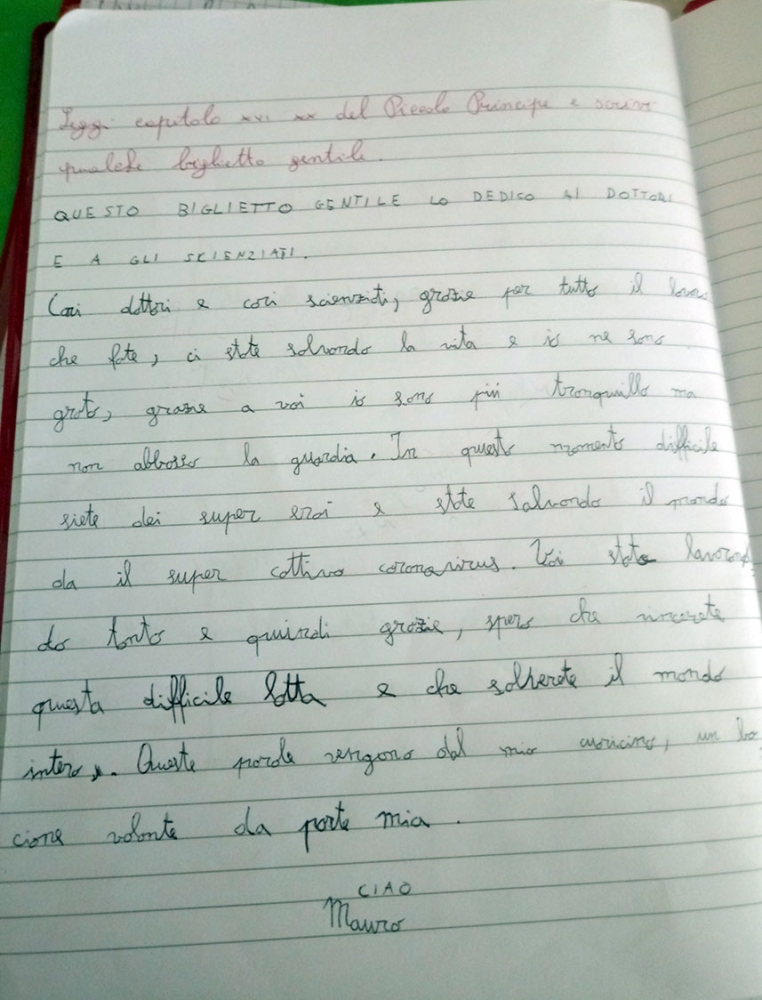 Leggi capitolo XVI XX del Piccolo Principe e scrivi
qualche biglietto gentile.
QUESTO BIGLIETTO GENTILE LO DEDICO AI DOTTORI
E A GLI SCIENZIATI.
Cari dottori e cari scienziati, grazie per tutto il lavoro
che fate, ci state salvando la vita e io ne sono
grato, grazie a voi io sono più tranquillo ma
non abbasso la guardia. In questo momento difficile
siete dei super eroi e state salvando il mondo
da il super cattivo coronavirus. Voi state lavoran
do tanto e quindi grazie, spero che vincerete
questa difficile lotta e che salverete il mondo
intero. Queste parole vengono dal mio cuoricino, un ba
cione volante da parte mia.
CIAO
Mauro